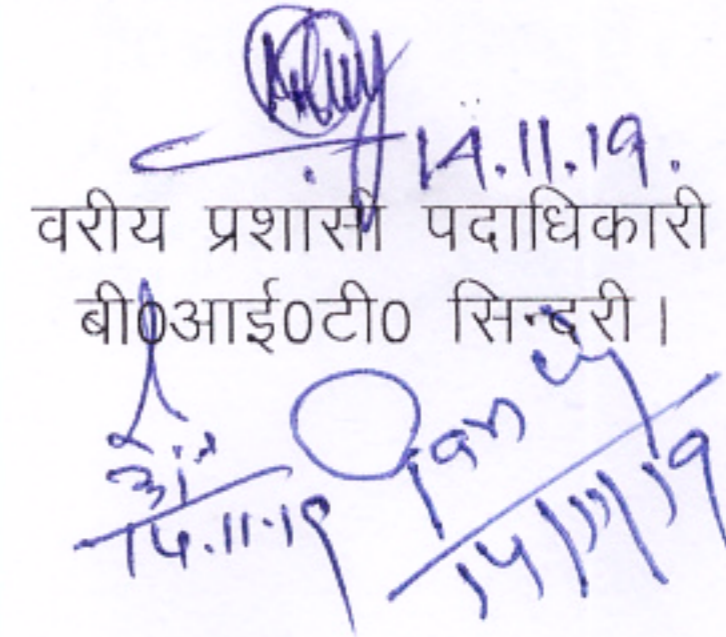 14.11.19.
वरीय प्रशासी पदाधिकारी
बी0आई0टी0 सिन्दरी।
14.11.19
14/11/19